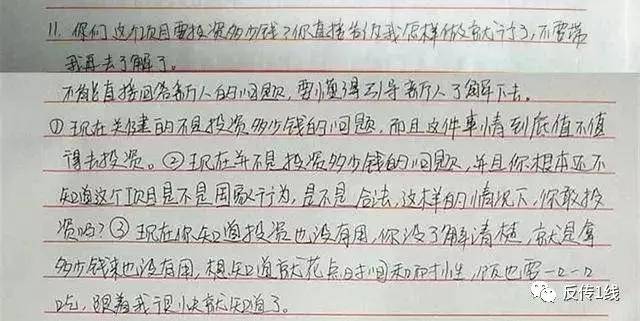 11. 你们这个项目要投资多少钱?你直接告诉我怎样做就行了,不要带
我再去了解了。
不能直接回答新人的问题,要懂得引导新人了解下去。
①现在关键的不是投资多少钱的问题,而且这件事情到底值不值
得去投资。②现在并不是投资多少钱的问题,并且你根本还不
知道这个项目是不是国家行为,是不是合法,这样的情况下,你敢投
资吗?③现在你知道投资也没有用,你没了解清楚,就是拿
多少钱来也没有用,想知道就花点时间和耐性,饭也要一口一口
吃,跟着我很快就知道了。
反传1线